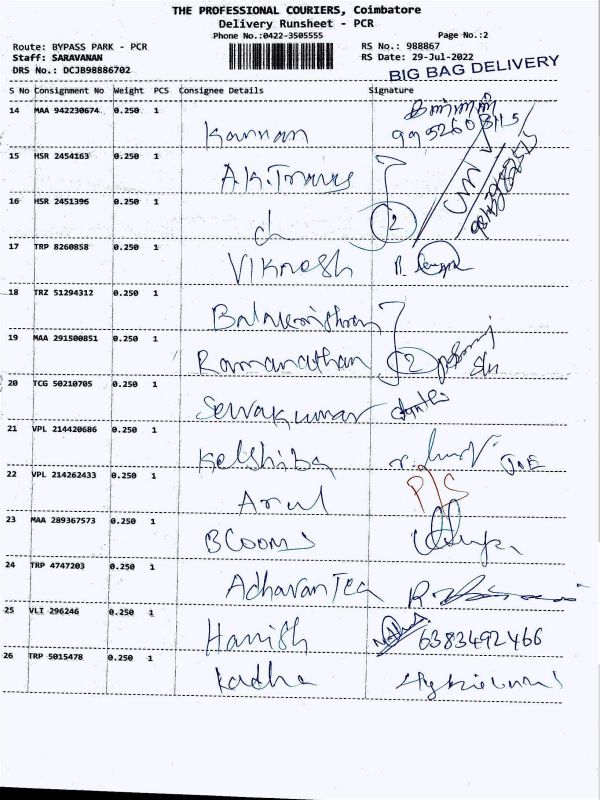 THE PROFESSIONAL COURIERS, Coimbatore
Delivery Runsheet - PCR
Phone No.:0422-3505555 Page No.:2
Route: BYPASS PARK - PCR RS No.: 988867
Staff: SARAVANAN RS Date: 29-Jul-2022
DRS No.: DCJB98886702 BIG BAG DELIVERY
S No Consignment No Weight PCS Consignee Details Signature
14 MAA 942230674 0.250 1 Kannan
15 HSR 2454163 0.250 1 A.K.Traves
16 HSR 2451396 0.250 1 2
17 TRP 8260858 0.250 1 Viknesh
18 TRZ 51294312 0.250 1 Balakrishnan
19 MAA 291500851 0.250 1 Ramanathan 2
20 TCG 50210705 0.250 1 Selvakumar
21 VPL 214420686 0.250 1
22 VPL 214262433 0.250 1 Arul P/S
23 MAA 289367573 0.250 1 BCooms
24 TRP 4747203 0.250 1 Adhavan Tea
25 VLI 296246 0.250 1 Harish 6383492466
26 TRP 5015478 0.250 1 Radha